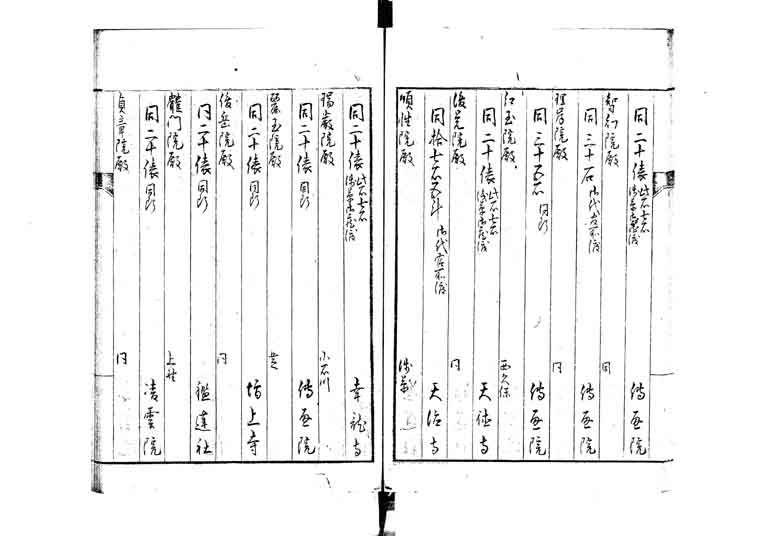 同二十俵 此石七石 浅草御蔵渡 傳通院
智幻院殿 同
同三十石 御代官所渡 傳通院
理岸院殿 同
同三十五石 同断 傳通院
紅玉院殿 西久保
同二十俵 此石七石 浅草御蔵渡 天徳寺
後覚院殿 同
同拾七石五斗 御代官所渡 天徳寺
順性院殿 浅草
同二十俵 此石七石 浅草御蔵渡 幸龍寺
瑞巌院殿 小石川
同二十俵 同断 傳通院
麗玉院殿 芝
同二十俵 同断 増上寺
俊岳院殿 同
同二十俵 同断 鑑蓮社
龍門院殿 上野
同二十俵 同断 凌雲院
貞章院殿 同